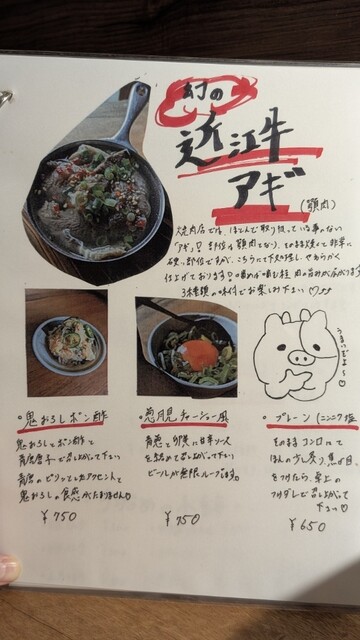 幻の
近江牛
アギ
(顎肉)
焼肉店では、ほとんど取り扱っている事のない
「アギ」!部位は顎肉でなり、そのまま焼くと非常に
硬い部位ですが、こちらにて下処理し、やわらかく
仕上げております!噛めば噛む程、肉の旨みが広がります
3種類の味付でお楽しみ下さい♡♪
うまいだよ〜♡
・鬼おろしポン酢
鬼おろしとポン酢と
青唐辛子で召し上がって下さい
青唐のピリッとしたアクセントと
鬼おろしの食感がたまりません
¥750
・葱月見チャーシュー風
青葱と卵黄に甘辛ソース
を絡めて召し上がって下さい
ビールが無限ループします。
¥750
・プレーン(ニンニク塩
そのままコンロにて
ほんの少し炙り、焦げ目
をつけたら、卓上の
つけダレで召し上がって
下さい♡
¥650